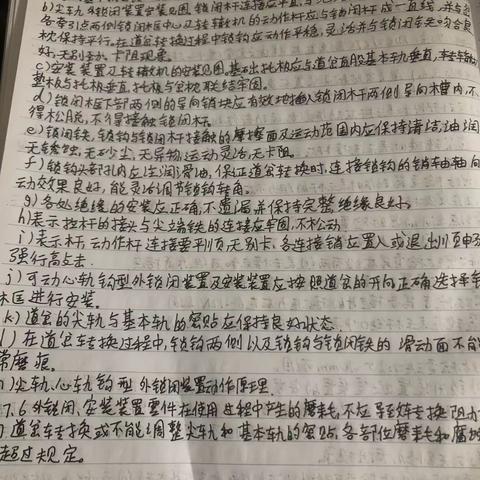 b)尖轨外锁闭装置安装见图,锁闭杆连接应平直,与
各牵引点两侧锁闭框中心及转辙机的动作杆应与锁闭杆成一直线,并与
枕保持平行。在道岔转换过程中锁钩应动作平稳,灵活并与锁闭铁吻合良
好,无别劲、卡阻现象。
c)安装装置及转辙机的安装见图,基础托板应与道岔直股基本轨垂直,
垫板与托板垂直,托板与岔枕联结牢固。
d)锁闭框下部两侧的导向销块应有效地插入锁闭杆两侧导向槽内,不
得松脱,不得接触锁闭杆。
e)锁闭铁,锁钩与锁闭杆接触的摩擦面及运动范围内应保持清洁,油润
无锈蚀,无砂尘,无异物,运动灵活,无卡阻。
f)锁钩头部孔内应注润滑油,保证道岔转换时,连接锁钩的销轴轴向
动效果良好,能灵活调节锁钩转角。
g)各处绝缘的安装应正确,不遗漏并保持完整绝缘良好。
h)表示拉杆的接头与尖端铁的连接应牢固,不松动
i)表示杆,动作杆连接要平顺,无别卡,各连接销应置入或退出顺畅
强行敲击.
j)可动心轨钩型外锁闭装置及安装装置应按照道岔的开向正确选择
框进行安装。
k)道岔的尖轨与基本轨的密贴应保持良好状态.
l)在道岔转换过程中,锁钩两侧以及锁钩与锁闭铁的滑动面不能
常磨痕.
)尖轨、心轨钩型外锁闭装置动作原理.
7.6外锁闭、安装装置零件在使用过程中产生的磨耗,不应导致转换阻力
道岔转换或不能调整尖轨和基本轨的密贴,各部位磨耗和腐
超过规定。